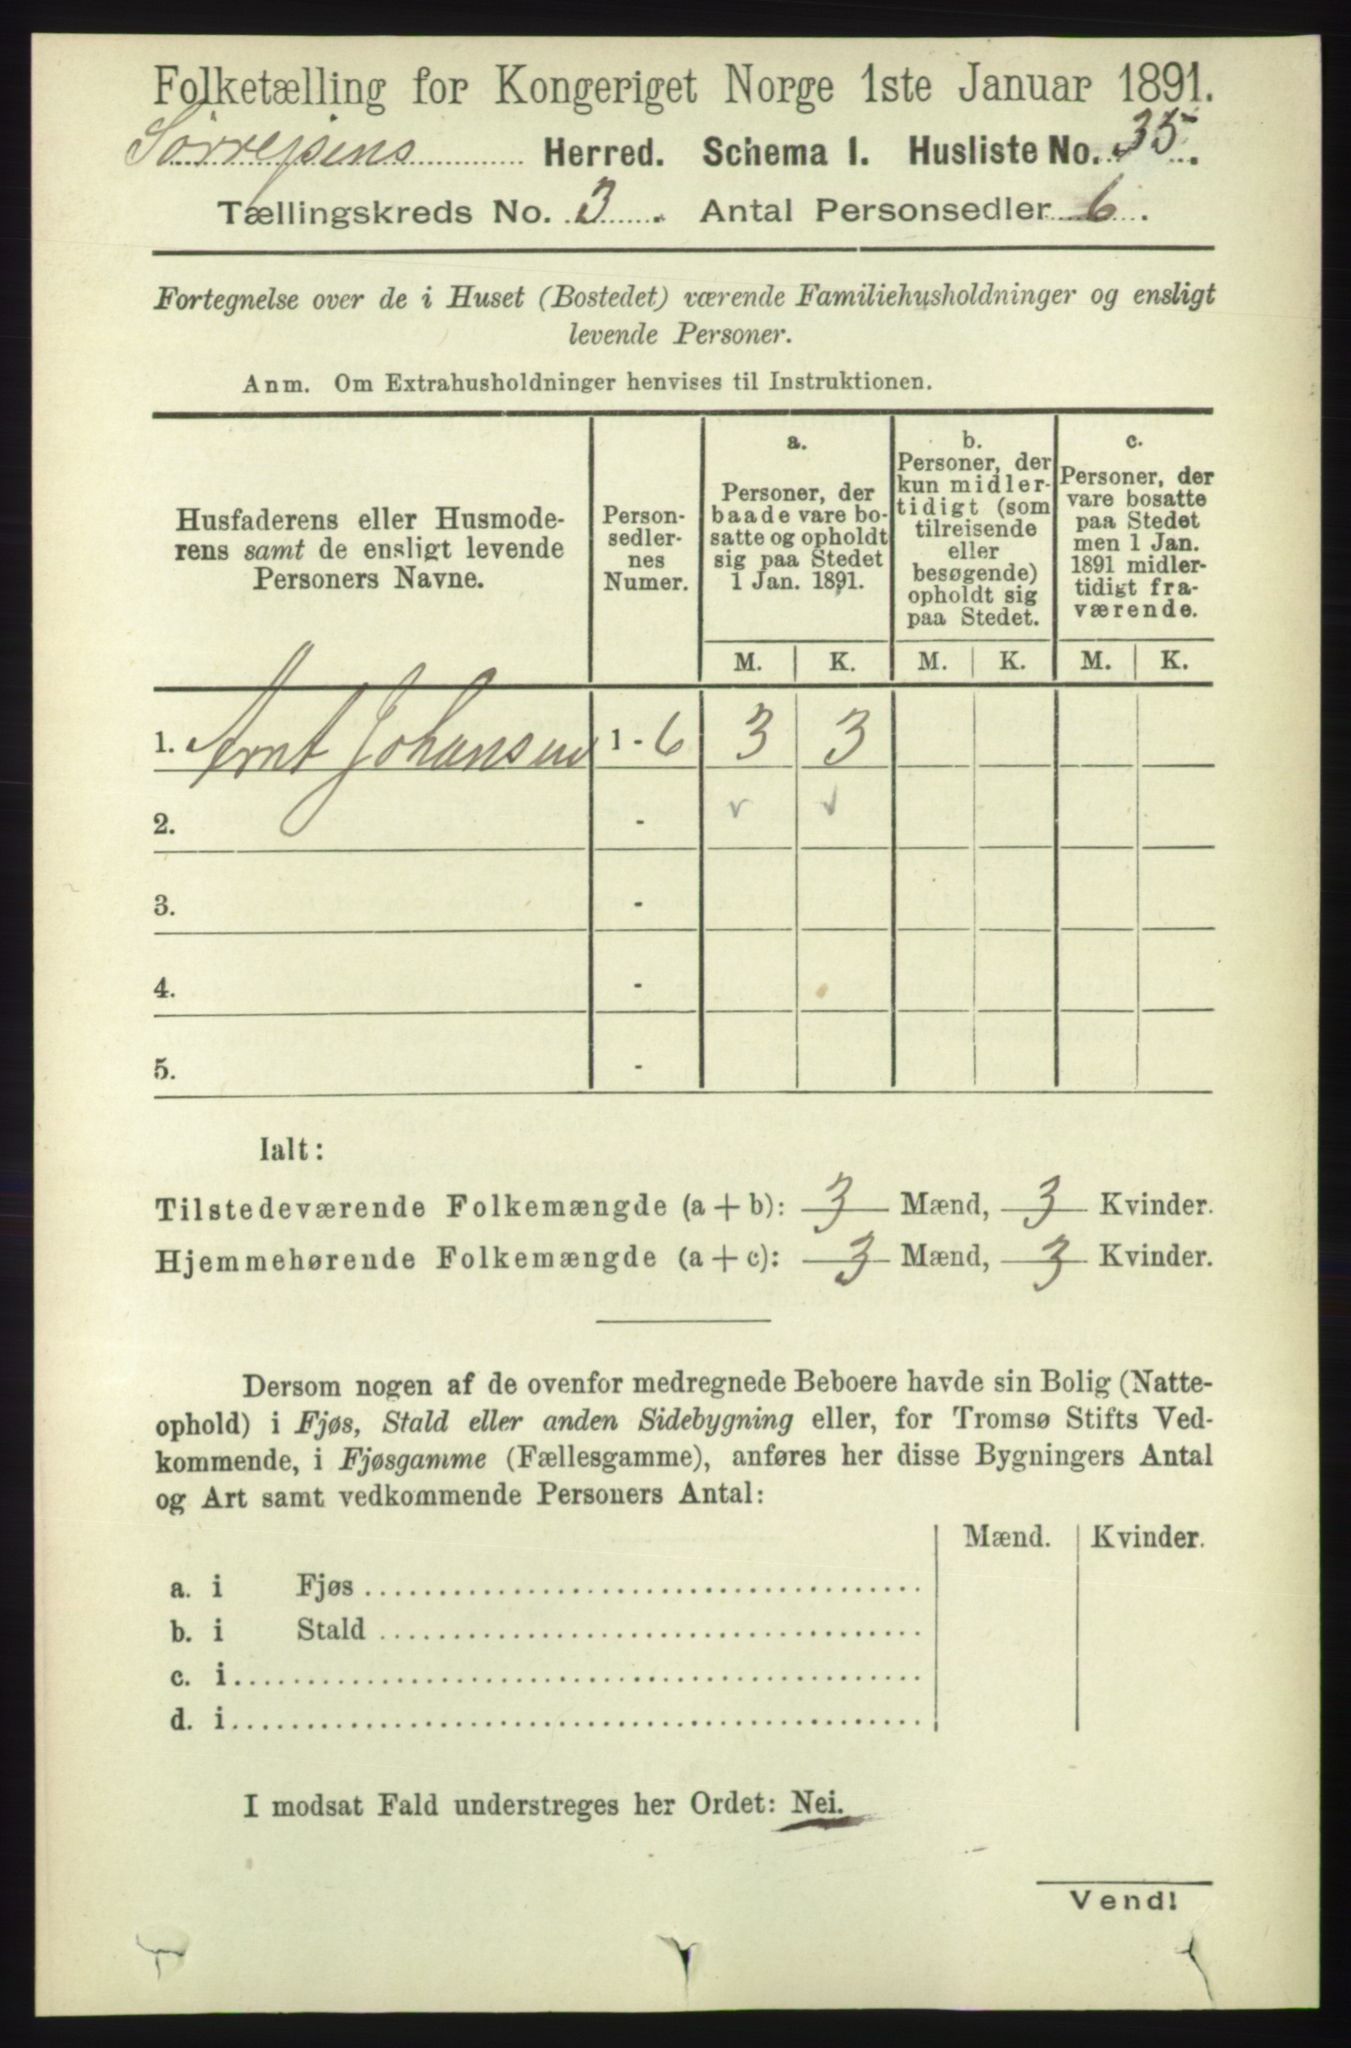 Folketælling for Kongeriget Norge 1ste Januar 1891.
Sørreisens Herred. Schema 1. Husliste No. 35.
Tællingskreds No. 3. Antal Personsedler 6.
Fortegnelse over de i Huset (Bostedet) værende Familiehusholdninger og ensligt
levende Personer.
Anm. Om Extrahusholdninger henvises til Instruktionen.
Husfaderens eller Husmode-
rens samt de ensligt levende
Personers Navne.
Person-
sedler-
nes
Numer.
a.
Personer, der
baade vare bo-
satte og opholdt
sig paa Stedet
1 Jan. 1891.
b.
Personer, der
kun midler-
tidigt (som
tilreisende
eller
besøgende)
opholdt sig
paa Stedet.
c.
Personer, der
vare bosatte
paa Stedet
men 1 Jan.
1891 midler-
tidigt fra-
værende.
M. K. M. K. M. K.
1. Arnt Johansen 1 - 6 3 3
2. -
3. -
4. -
5. -
Ialt:
Tilstedeværende Folkemængde (a + b): 3 Mænd, 3 Kvinder.
Hjemmehørende Folkemængde (a + c): 3 Mænd, 3 Kvinder.
Dersom nogen af de ovenfor medregnede Beboere havde sin Bolig (Natte-
ophold) i Fjøs, Stald eller anden Sidebygning eller, for Tromsø Stifts Ved-
kommende, i Fjøsgamme (Fællesgamme), anføres her disse Bygningers Antal
og Art samt vedkommende Personers Antal:
Mænd. Kvinder.
a. i Fjøs
b. i Stald
c. i
d. i
I modsat Fald understreges her Ordet: Nei.
Vend!